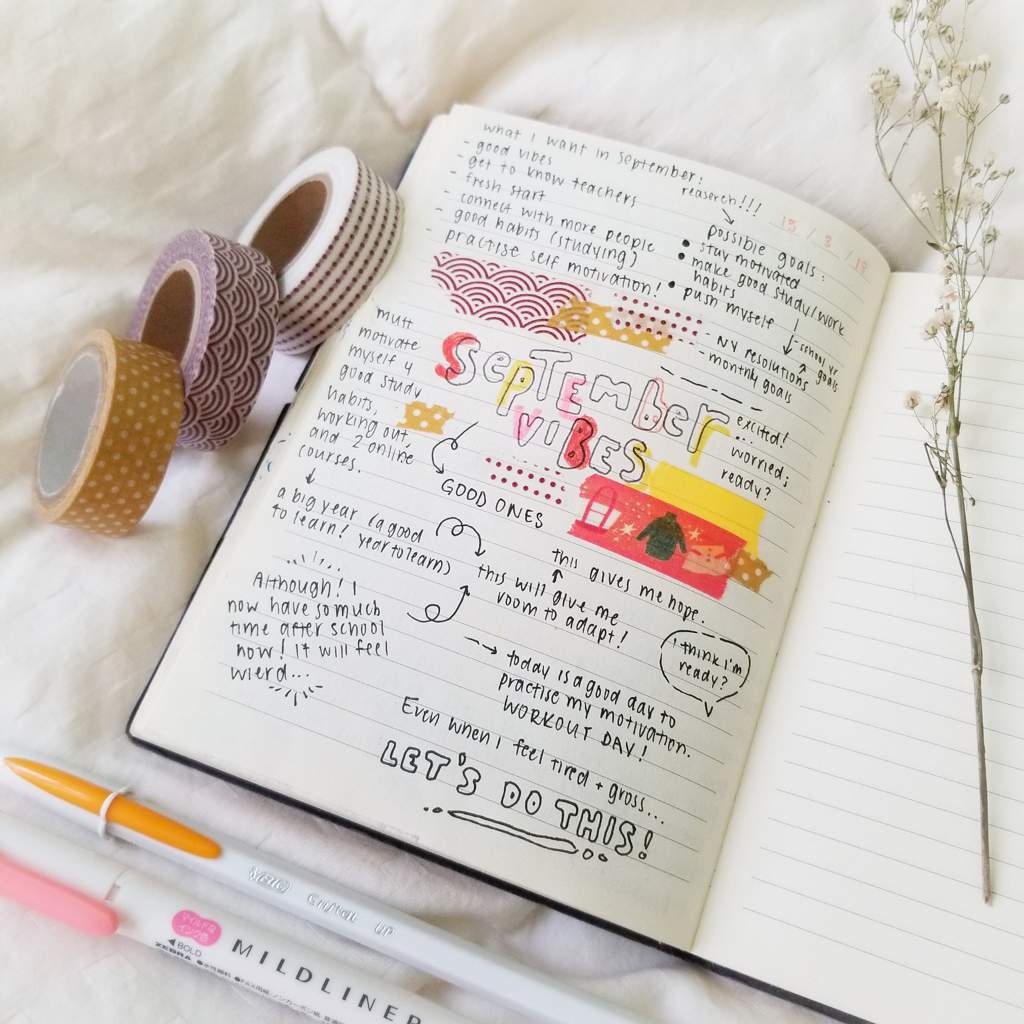 what I want in September:
- good vibes
- get to know teachers
- fresh start
- connect with more people
- good habits (studying)
- practise self motivation!
reaserch!!!
possible goals:
• stay motivated
• make good study/work
habits
• push myself
- NY resolutions
- monthly goals
- school yr
goals
motivate
myself 4
good study
habits,
working out,
and 2 online
courses.
SEPTEMBER
VIBES
GOOD ONES
excited!
...
worried;
ready?
a big year (a good
to learn! year to learn)
this gives me hope.
this will give me
room to adapt!
Although! I
now have so much
time after school
now! It will feel
wierd...
I think I'm
ready?
today is a good day to
practise my motivation.
WORKOUT DAY!
Even when I feel tired + gross...
LET'S DO THIS!
マイルドな
インク色
◀BOLD
ZEBRA
MILDLINER